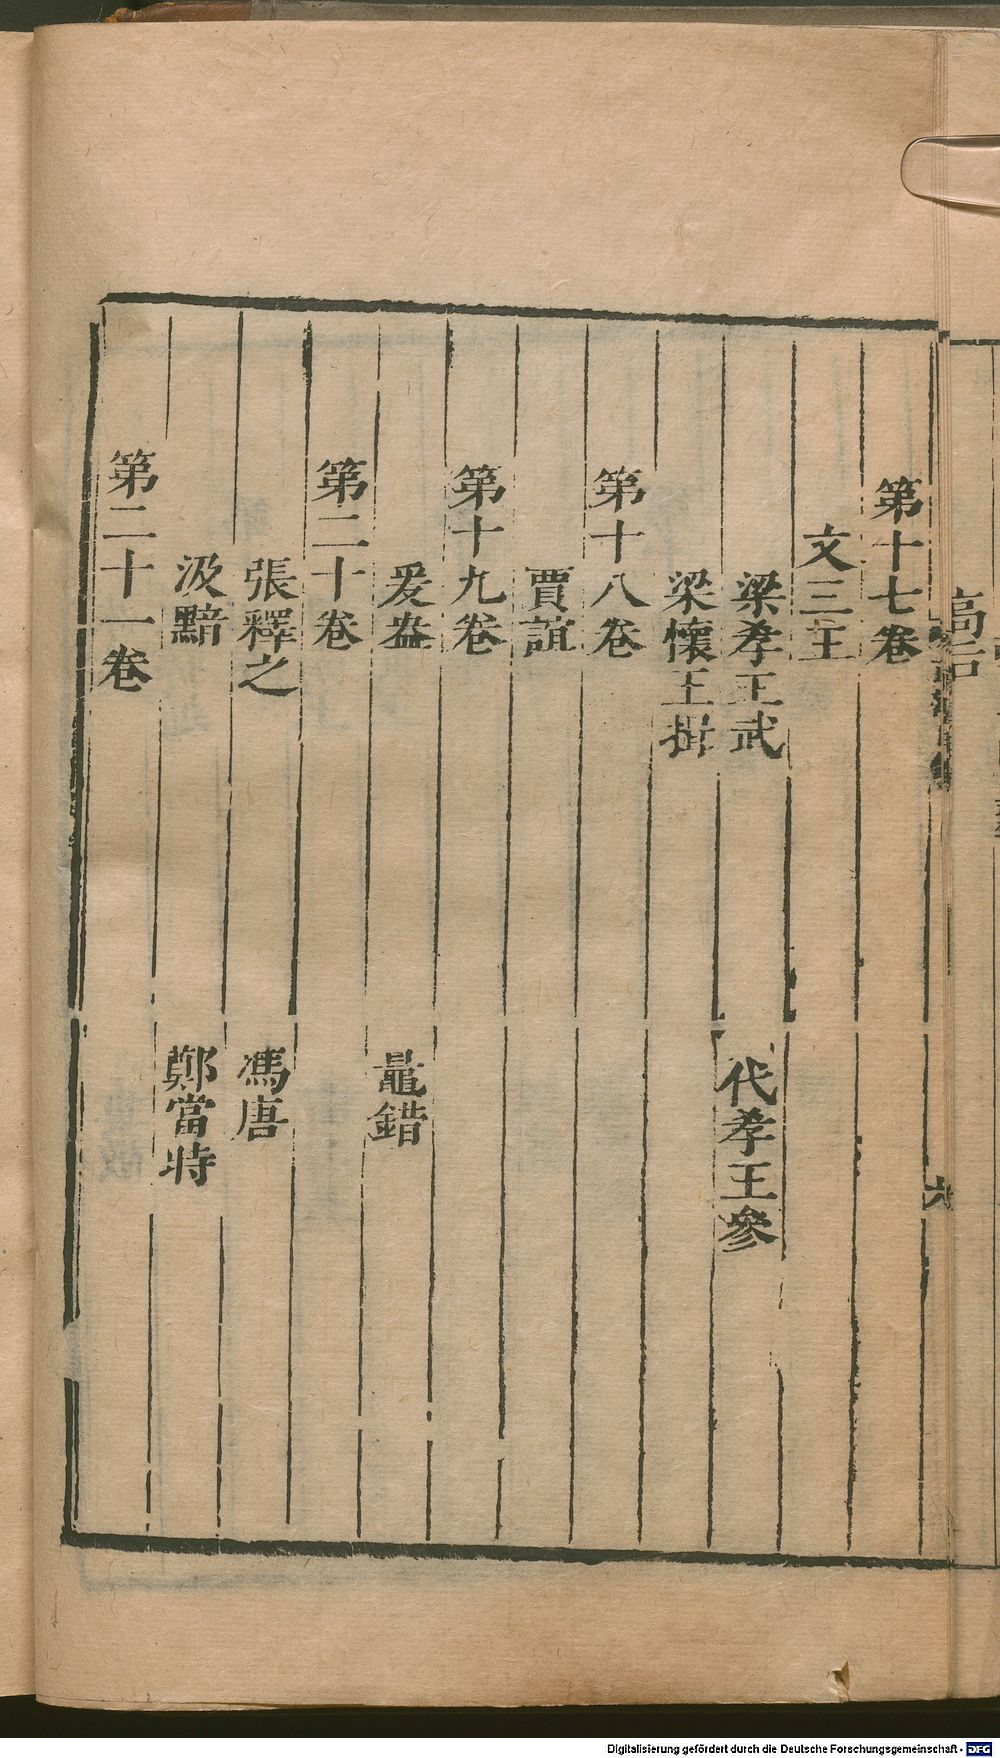 第十七卷
文三王
梁孝王武
代孝王參
梁懷王揖
第十八卷
賈誼
第十九卷
爰盎
鼂錯
第二十卷
張釋之
馮唐
汲黯
鄭當時
第二十一卷
高后
六
Digitalisierung gefördert durch die Deutsche Forschungsgemeinschaft - DFG